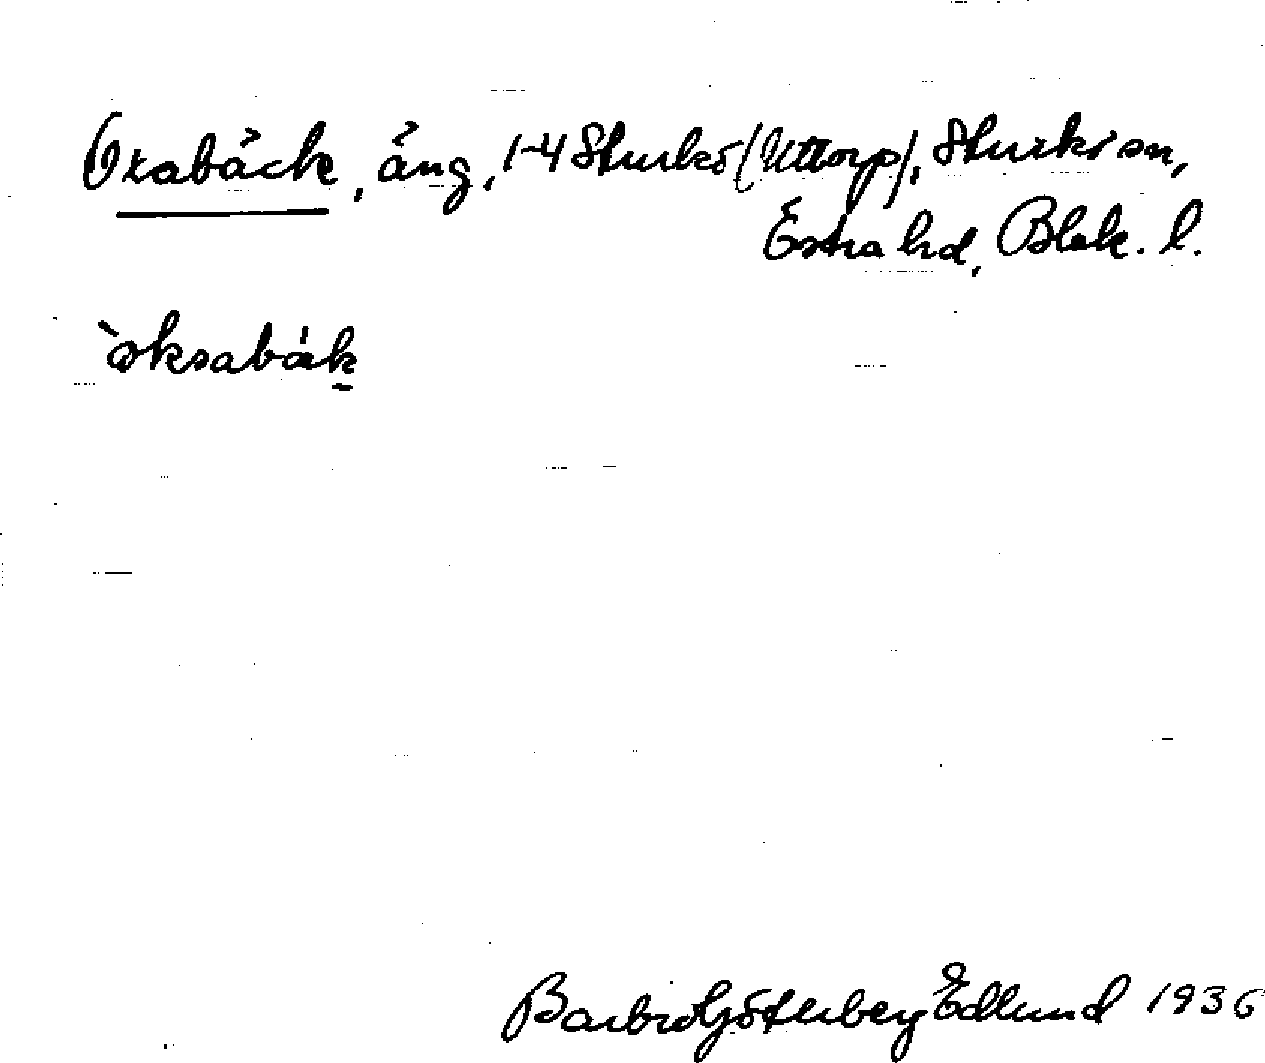 Oxabäck, äng, 1-4 Sturkö (Uttorp), Sturkö sn,
Östra hd, Blek. l.
`oksabák
Barbro Götterberg Edlund 1936